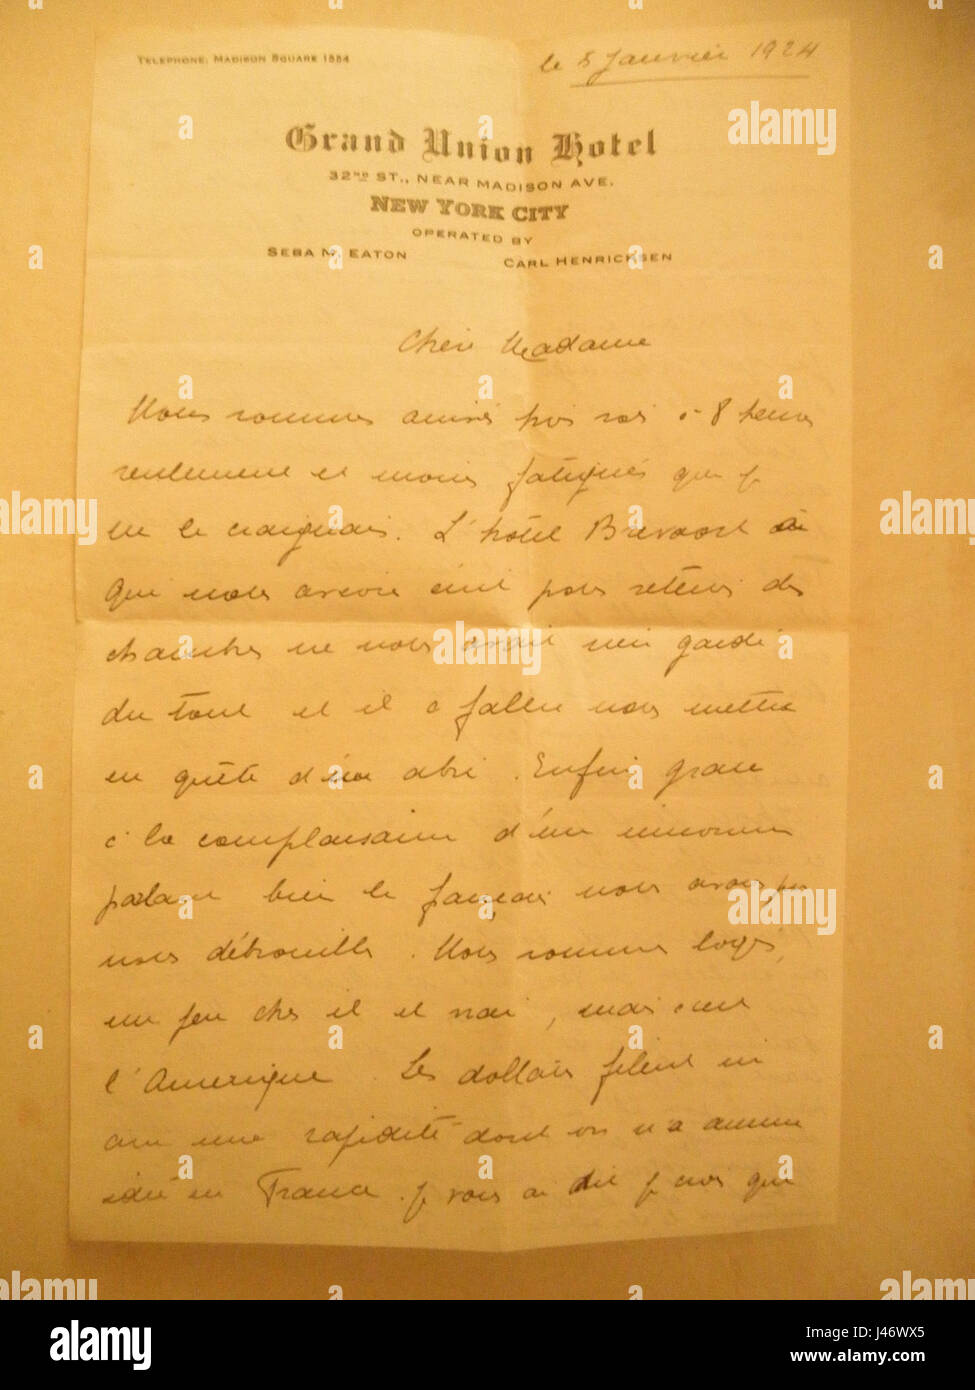 TELEPHONE: MADISON SQUARE 1584
le 5 Janvier 1924
Grand Union Hotel
32ND ST., NEAR MADISON AVE.
NEW YORK CITY
OPERATED BY
SEBA M. EATON CARL HENRICKSEN
Chère Madame
Nous sommes arrivés hier soir à 8 heures
seulement et moins fatigués que je
ne le craignais. L'hôtel Brevoort
qui nous avions écrit pour retenir des
chambres ne nous avait rien gardé
du tout et il a fallu nous mettre
en quête d'un abri. Enfin grâce
à la complaisance d'un inconnu
parlant bien le français nous avons pu
nous débrouiller. Nous sommes logés,
un peu cher il est vrai, mais c'est
l'Amérique. Les dollars filent ici
avec une rapidité dont on n'a aucune
idée en France. Je vous ai dit je crois que
alamy
alamy stock photo
J46WX5
www.alamy.com